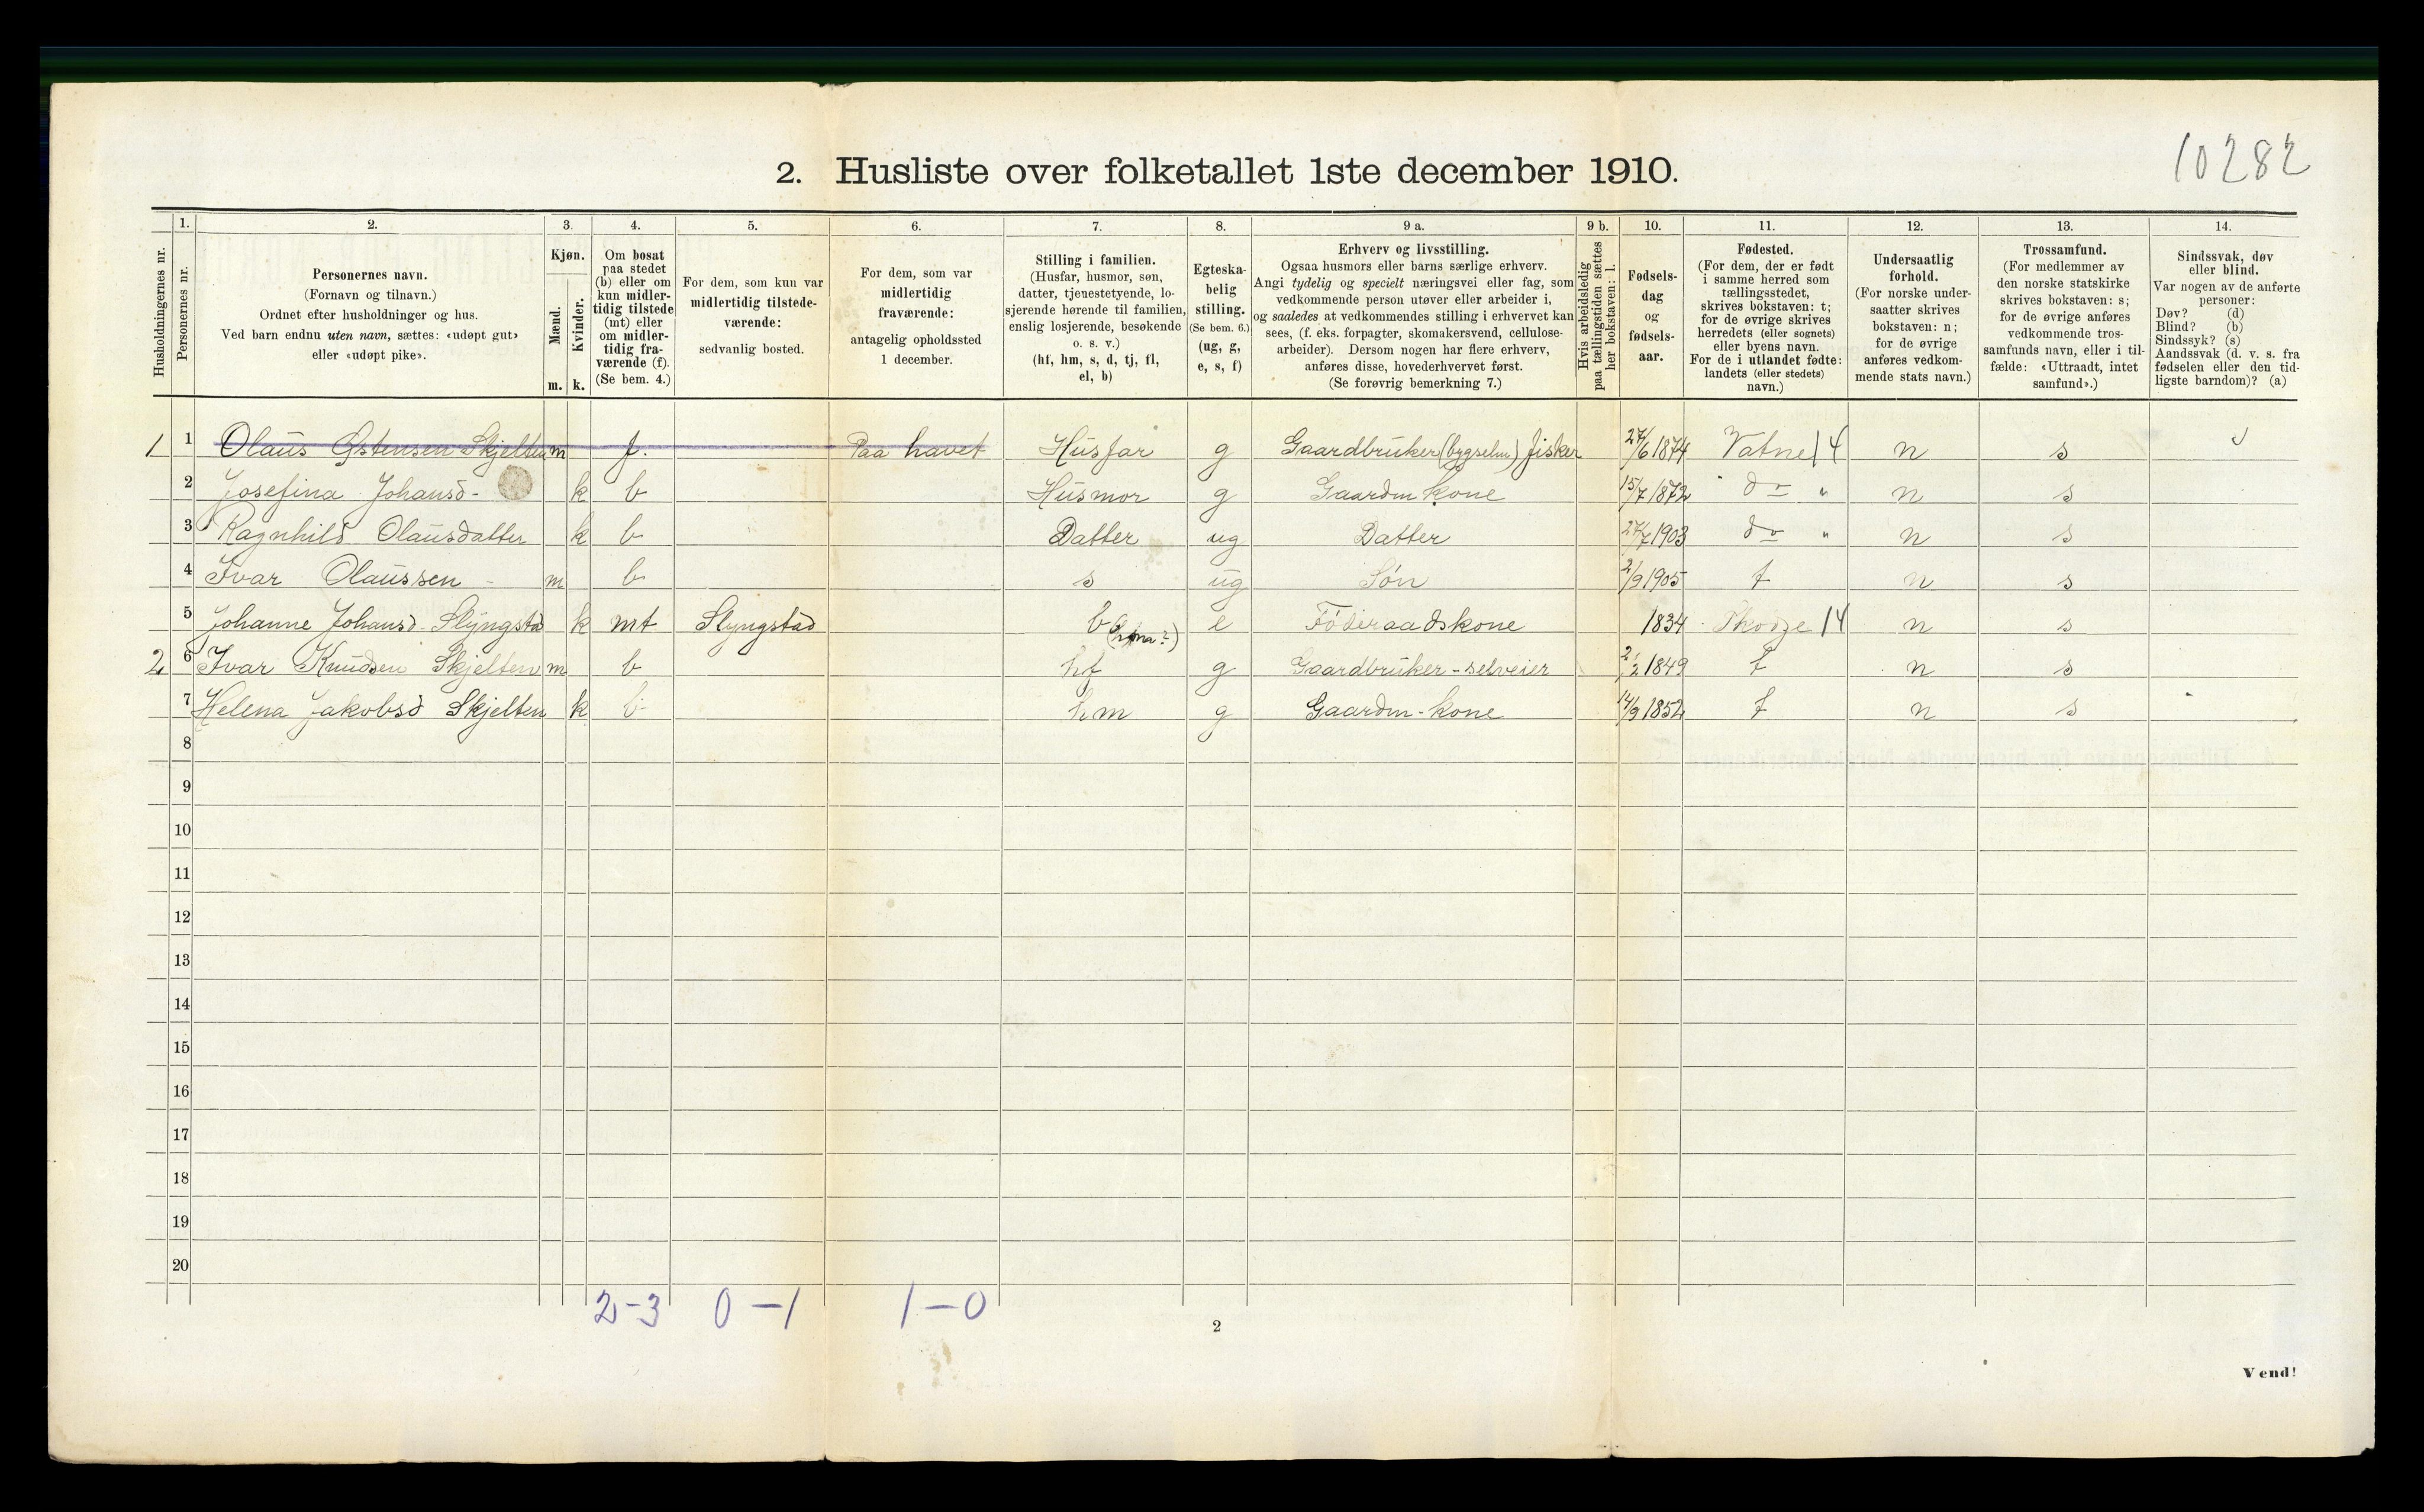 10282
2. Husliste over folketallet 1ste december 1910.
Husholdningernes nr.
1.
Personernes nr.
2.
Personernes navn.
(Fornavn og tilnavn.)
Ordnet efter husholdninger og hus.
Ved barn endnu uten navn, sættes: «udøpt gut»
eller «udøpt pike».
3.
Kjøn.
Mænd.
Kvinder.
m. k.
4.
Om bosat
paa stedet
(b) eller om
kun midler-
tidig tilstede
(mt) eller
om midler-
tidig fra-
værende (f).
(Se bem. 4.)
5.
For dem, som kun var
midlertidig tilstede-
værende:
sedvanlig bosted.
6.
For dem, som var
midlertidig
fraværende:
antagelig opholdssted
1 december.
7.
Stilling i familien.
(Husfar, husmor, søn,
datter, tjenestetyende, lo-
sjerende hørende til familien,
enslig losjerende, besøkende
o. s. v.)
(hf, hm, s, d, tj, fl,
el, b)
8.
Egteska-
belig
stilling.
(Se bem. 6.)
(ug, g,
e, s, f)
9 a.
Erhverv og livsstilling.
Ogsaa husmors eller barns særlige erhverv.
Angi tydelig og specielt næringsvei eller fag, som
vedkommende person utøver eller arbeider i,
og saaledes at vedkommendes stilling i erhvervet kan
sees, (f. eks. forpagter, skomakersvend, cellulose-
arbeider). Dersom nogen har flere erhverv,
anføres disse, hovederhvervet først.
(Se forøvrig bemerkning 7.)
9 b.
Hvis arbeidsledig
paa tællingstiden sættes
her bokstaven: l.
10.
Fødsels-
dag
og
fødsels-
aar.
11.
Fødested.
(For dem, der er født
i samme herred som
tællingsstedet,
skrives bokstaven: t;
for de øvrige skrives
herredets (eller sognets)
eller byens navn.
For de i utlandet fødte:
landets (eller stedets)
navn.)
12.
Undersaatlig
forhold.
(For norske under-
saatter skrives
bokstaven: n;
for de øvrige
anføres vedkom-
mende stats navn.)
13.
Trossamfund.
(For medlemmer av
den norske statskirke
skrives bokstaven: s;
for de øvrige anføres
vedkommende tros-
samfunds navn, eller i til-
fælde: «Uttraadt, intet
samfund».)
14.
Sindssvak, døv
eller blind.
Var nogen av de anførte
personer:
Døv? (d)
Blind? (b)
Sindssyk? (s)
Aandssvak (d. v. s. fra
fødselen eller den tid-
ligste barndom)? (a)
1 1 Olaus Østensen Skjelten m f. Paa havet Husfar g Gaardbruker (bygselm) fisker 27/6 1874 Vatne 14 n s
2 Josefina Johansd - k b Husmor g Gaardm kone 15/7 1872 do " n s
3 Ragnhild Olausdatter k b Datter ug Datter 27/7 1903 do " n s
4 Ivar Olaussen - m b s ug Søn 2/9 1905 t n s
5 Johanne Johansd. Slyngstad k mt Slyngstad b e Føderaadskone 1834 Skodje 14 n s
2 6 Ivar Knudsen Skjelten m b hf g Gaardbruker - selveier 2/2 1849 t n s
7 Helena Jakobsd Skjelten k b hm g Gaardm - kone 14/9 1852 t n s
8
9
10
11
12
13
14
15
16
17
18
19
20
2-3 0-1 1-0
2
Vend!